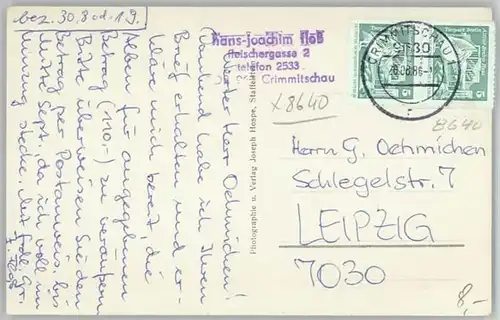 bez. 30.8. d. J. 9.
hans-joachim floß
fleischergasse 2
telefon 2533
Crimmitschau
x8640
Geehrter Herr Oehmichen!
Dankend habe ich Ihren
Brief erhalten und er-
kläre mich bereit die
Alben für angegebenen
Betrag (110,-) zu veräußern
Bitte überweisen Sie den
Betrag per Postanweis. bis
Mitte Sept., da ich voll im
Umzug stecke. Mit frdl. Gr.
Photographie u. Verlag Joseph Hoope,
CRIMMITSCHAU 1
9130
26.08.86-
8640
Herrn G. Oehmichen
Schlegelstr. 7
LEIPZIG
7030
8,-